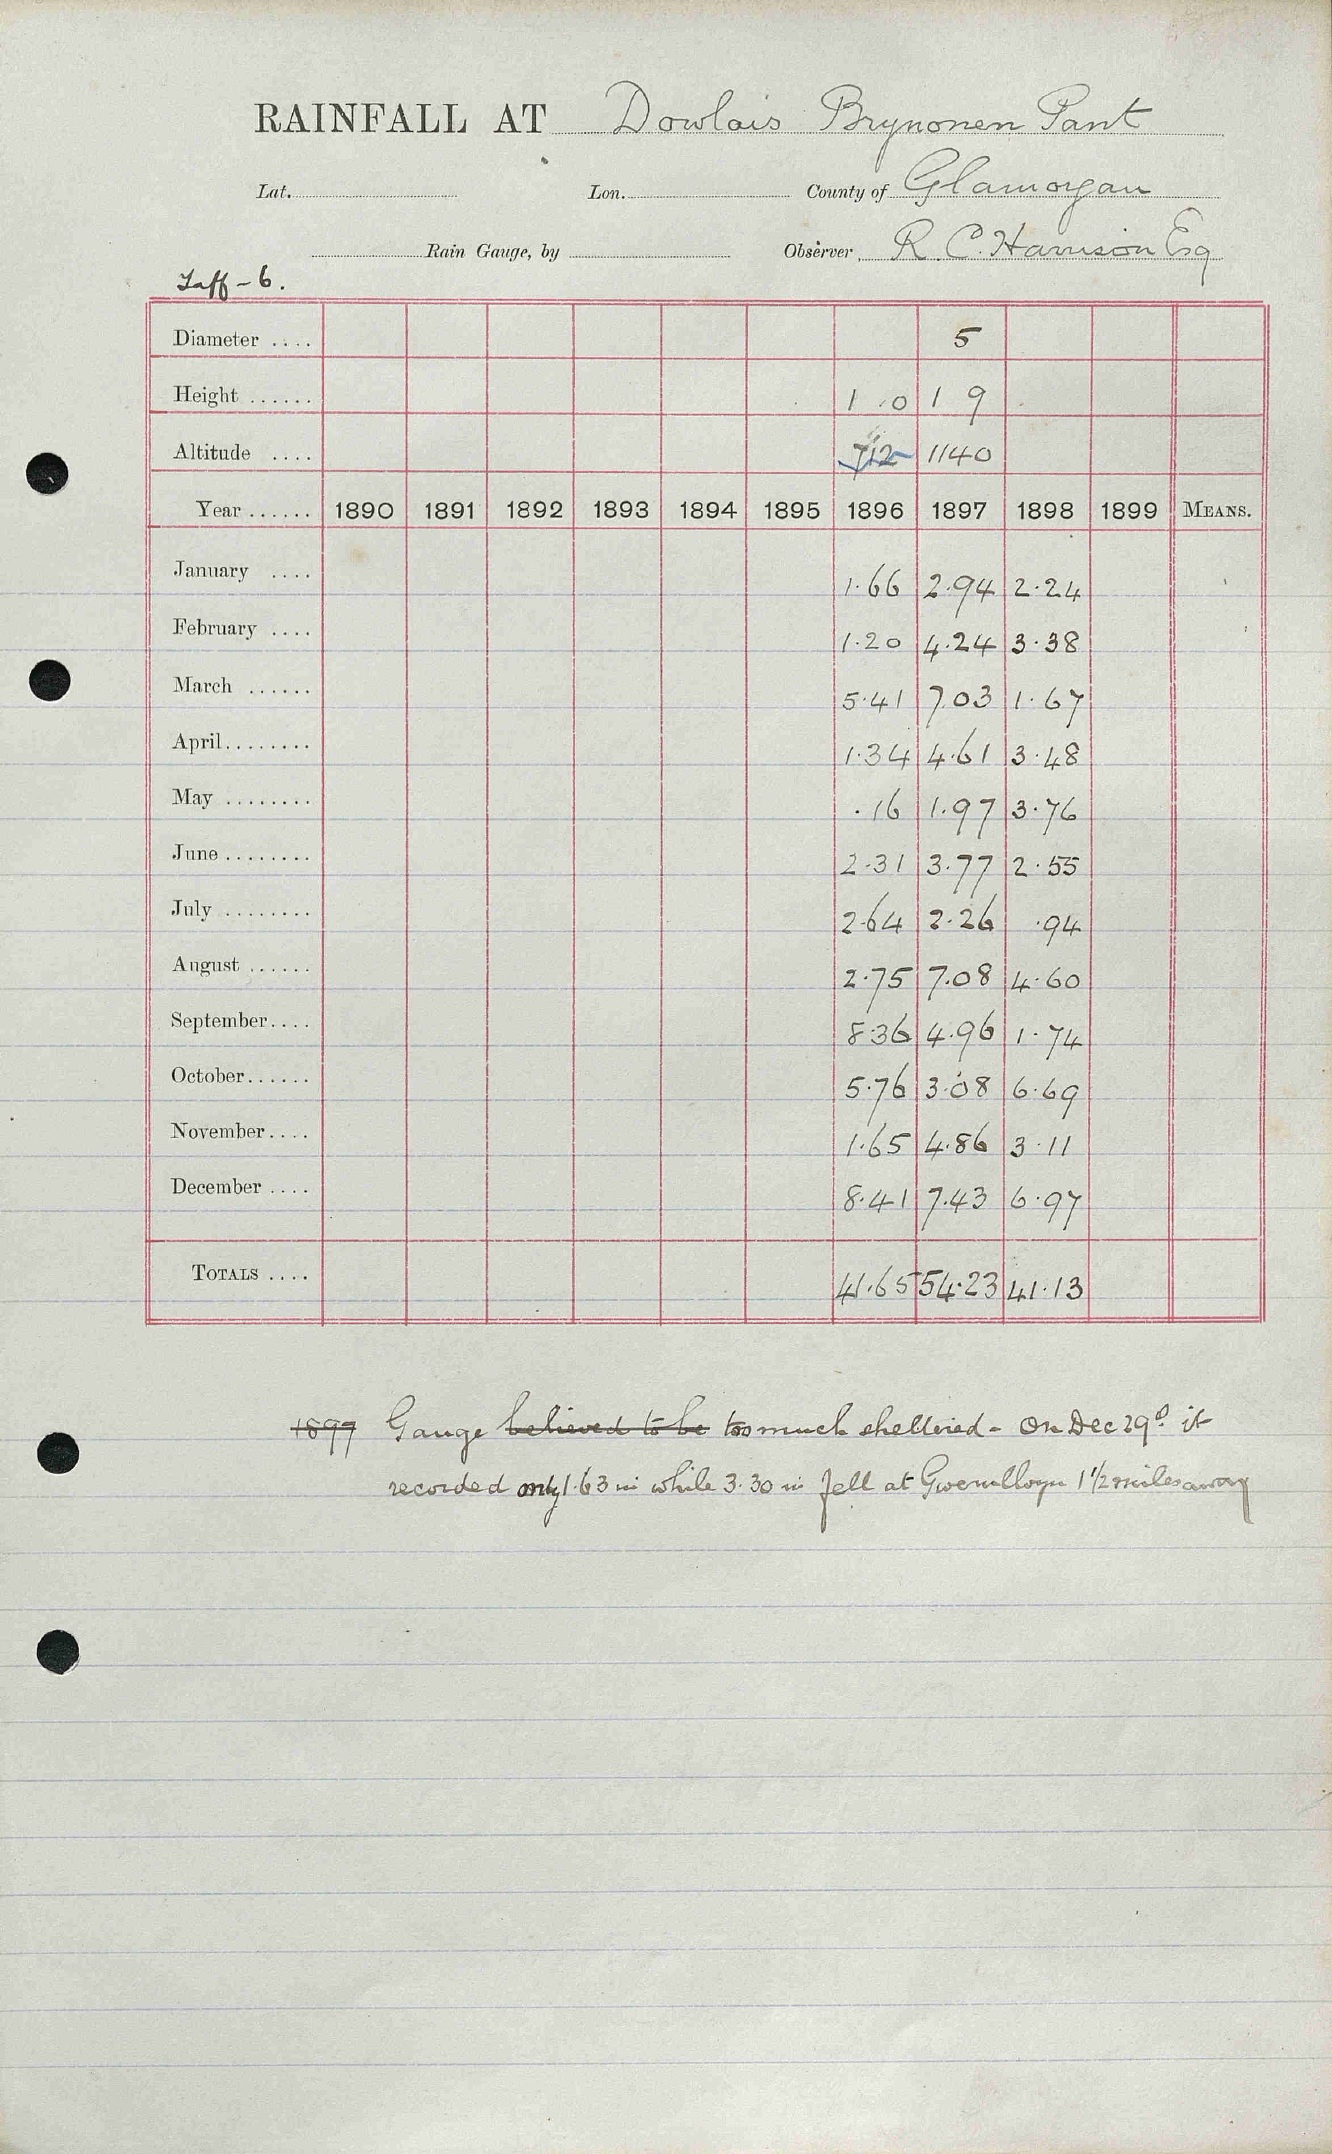 RAINFALL AT Dowlais Brynonen Pant
Lat. Lon. County of Glamorgan
Rain Gauge, by Observer, R. C. Harrison Esq
Taff - 6.
Diameter .... 5
Height ...... 1 .0 1 9
Altitude .... 712 1140
Year ...... 1890 1891 1892 1893 1894 1895 1896 1897 1898 1899 MEANS.
January .... 1.66 2.94 2.24
February .... 1.20 4.24 3.38
March ...... 5.41 7.03 1.67
April........ 1.34 4.61 3.48
May ........ .16 1.97 3.76
June ........ 2.31 3.77 2.55
July ........ 2.64 2.26 .94
August ...... 2.75 7.08 4.60
September.... 8.36 4.96 1.74
October...... 5.76 3.08 6.69
November.... 1.65 4.86 3.11
December .... 8.41 7.43 6.97
TOTALS .... 41.65 54.23 41.13
1897 Gauge believed to be too much sheltered - On Dec 29th it
recorded only 1.63 in while 3.30 in fell at 1 1/2 miles away